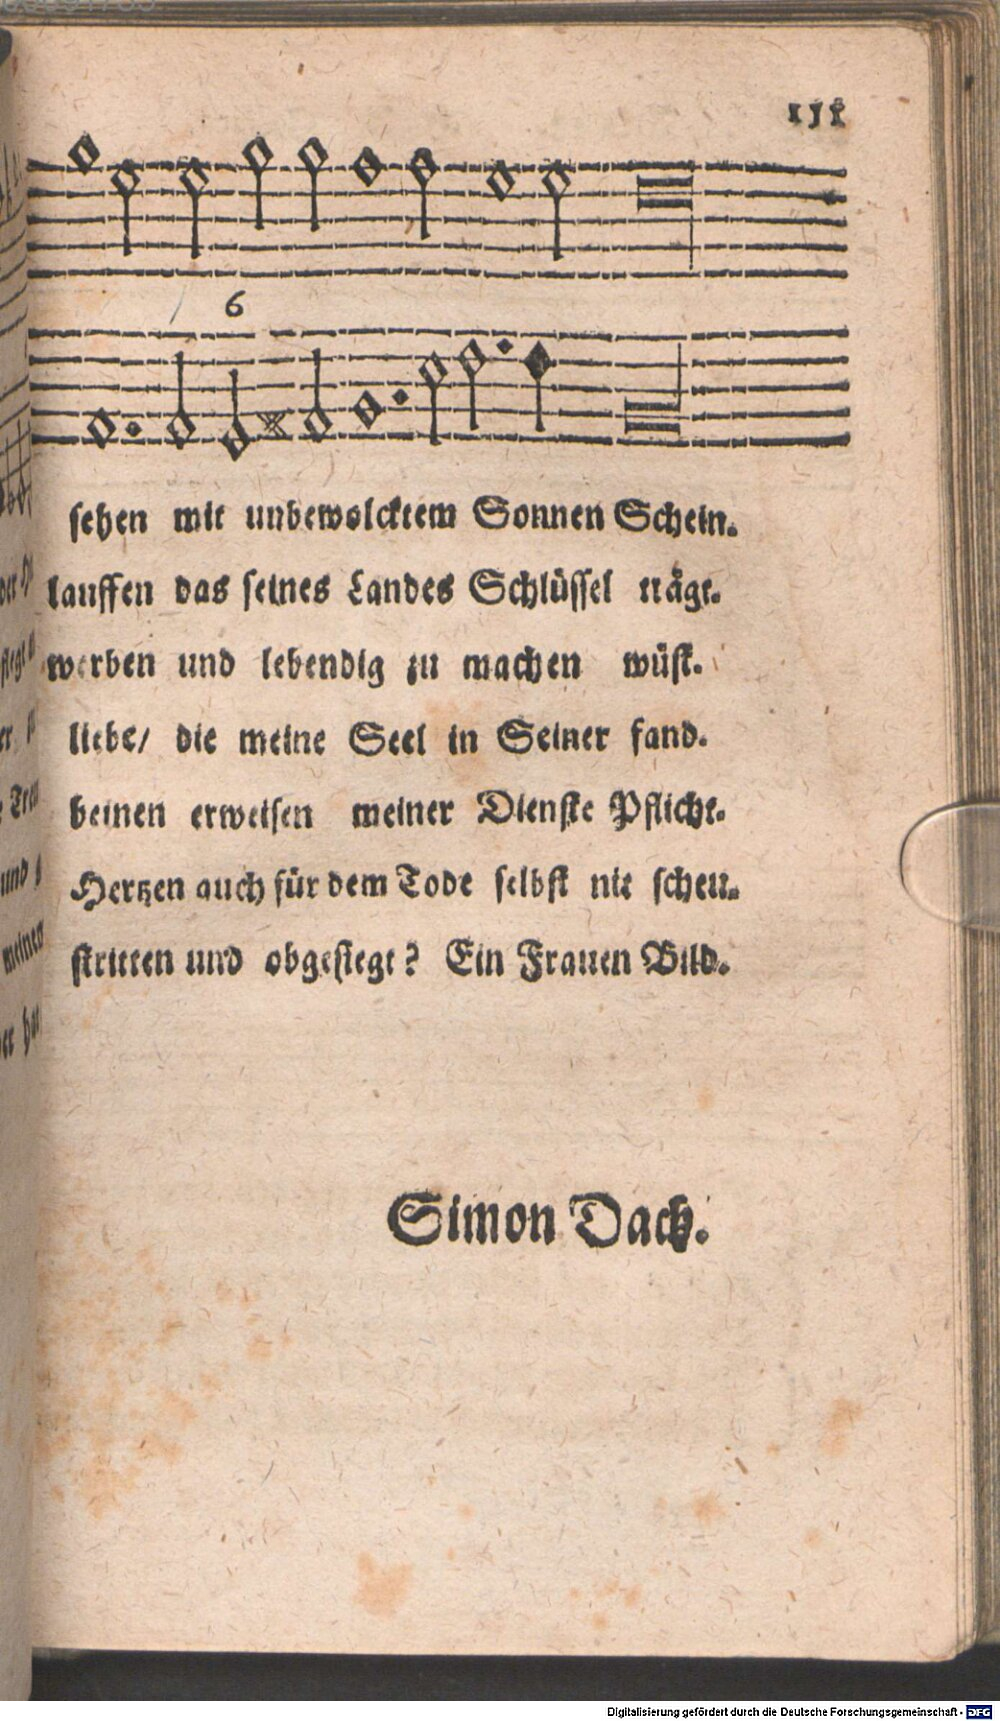 151
6
sehen mit unbewolcktem Sonnen Schein.
lauffen das seines Landes Schlüssel trägt.
werben und lebendig zu machen wüst.
liebe/ die meine Seel in Seiner fand.
beinen erweisen meiner Dienste Pflicht.
Hertzen auch für dem Tode selbst nit scheu.
stritten und obgesiegt? Ein Frauen Bild.
Simon Dach.
Digitalisierung gefördert durch die Deutsche Forschungsgemeinschaft - DFG